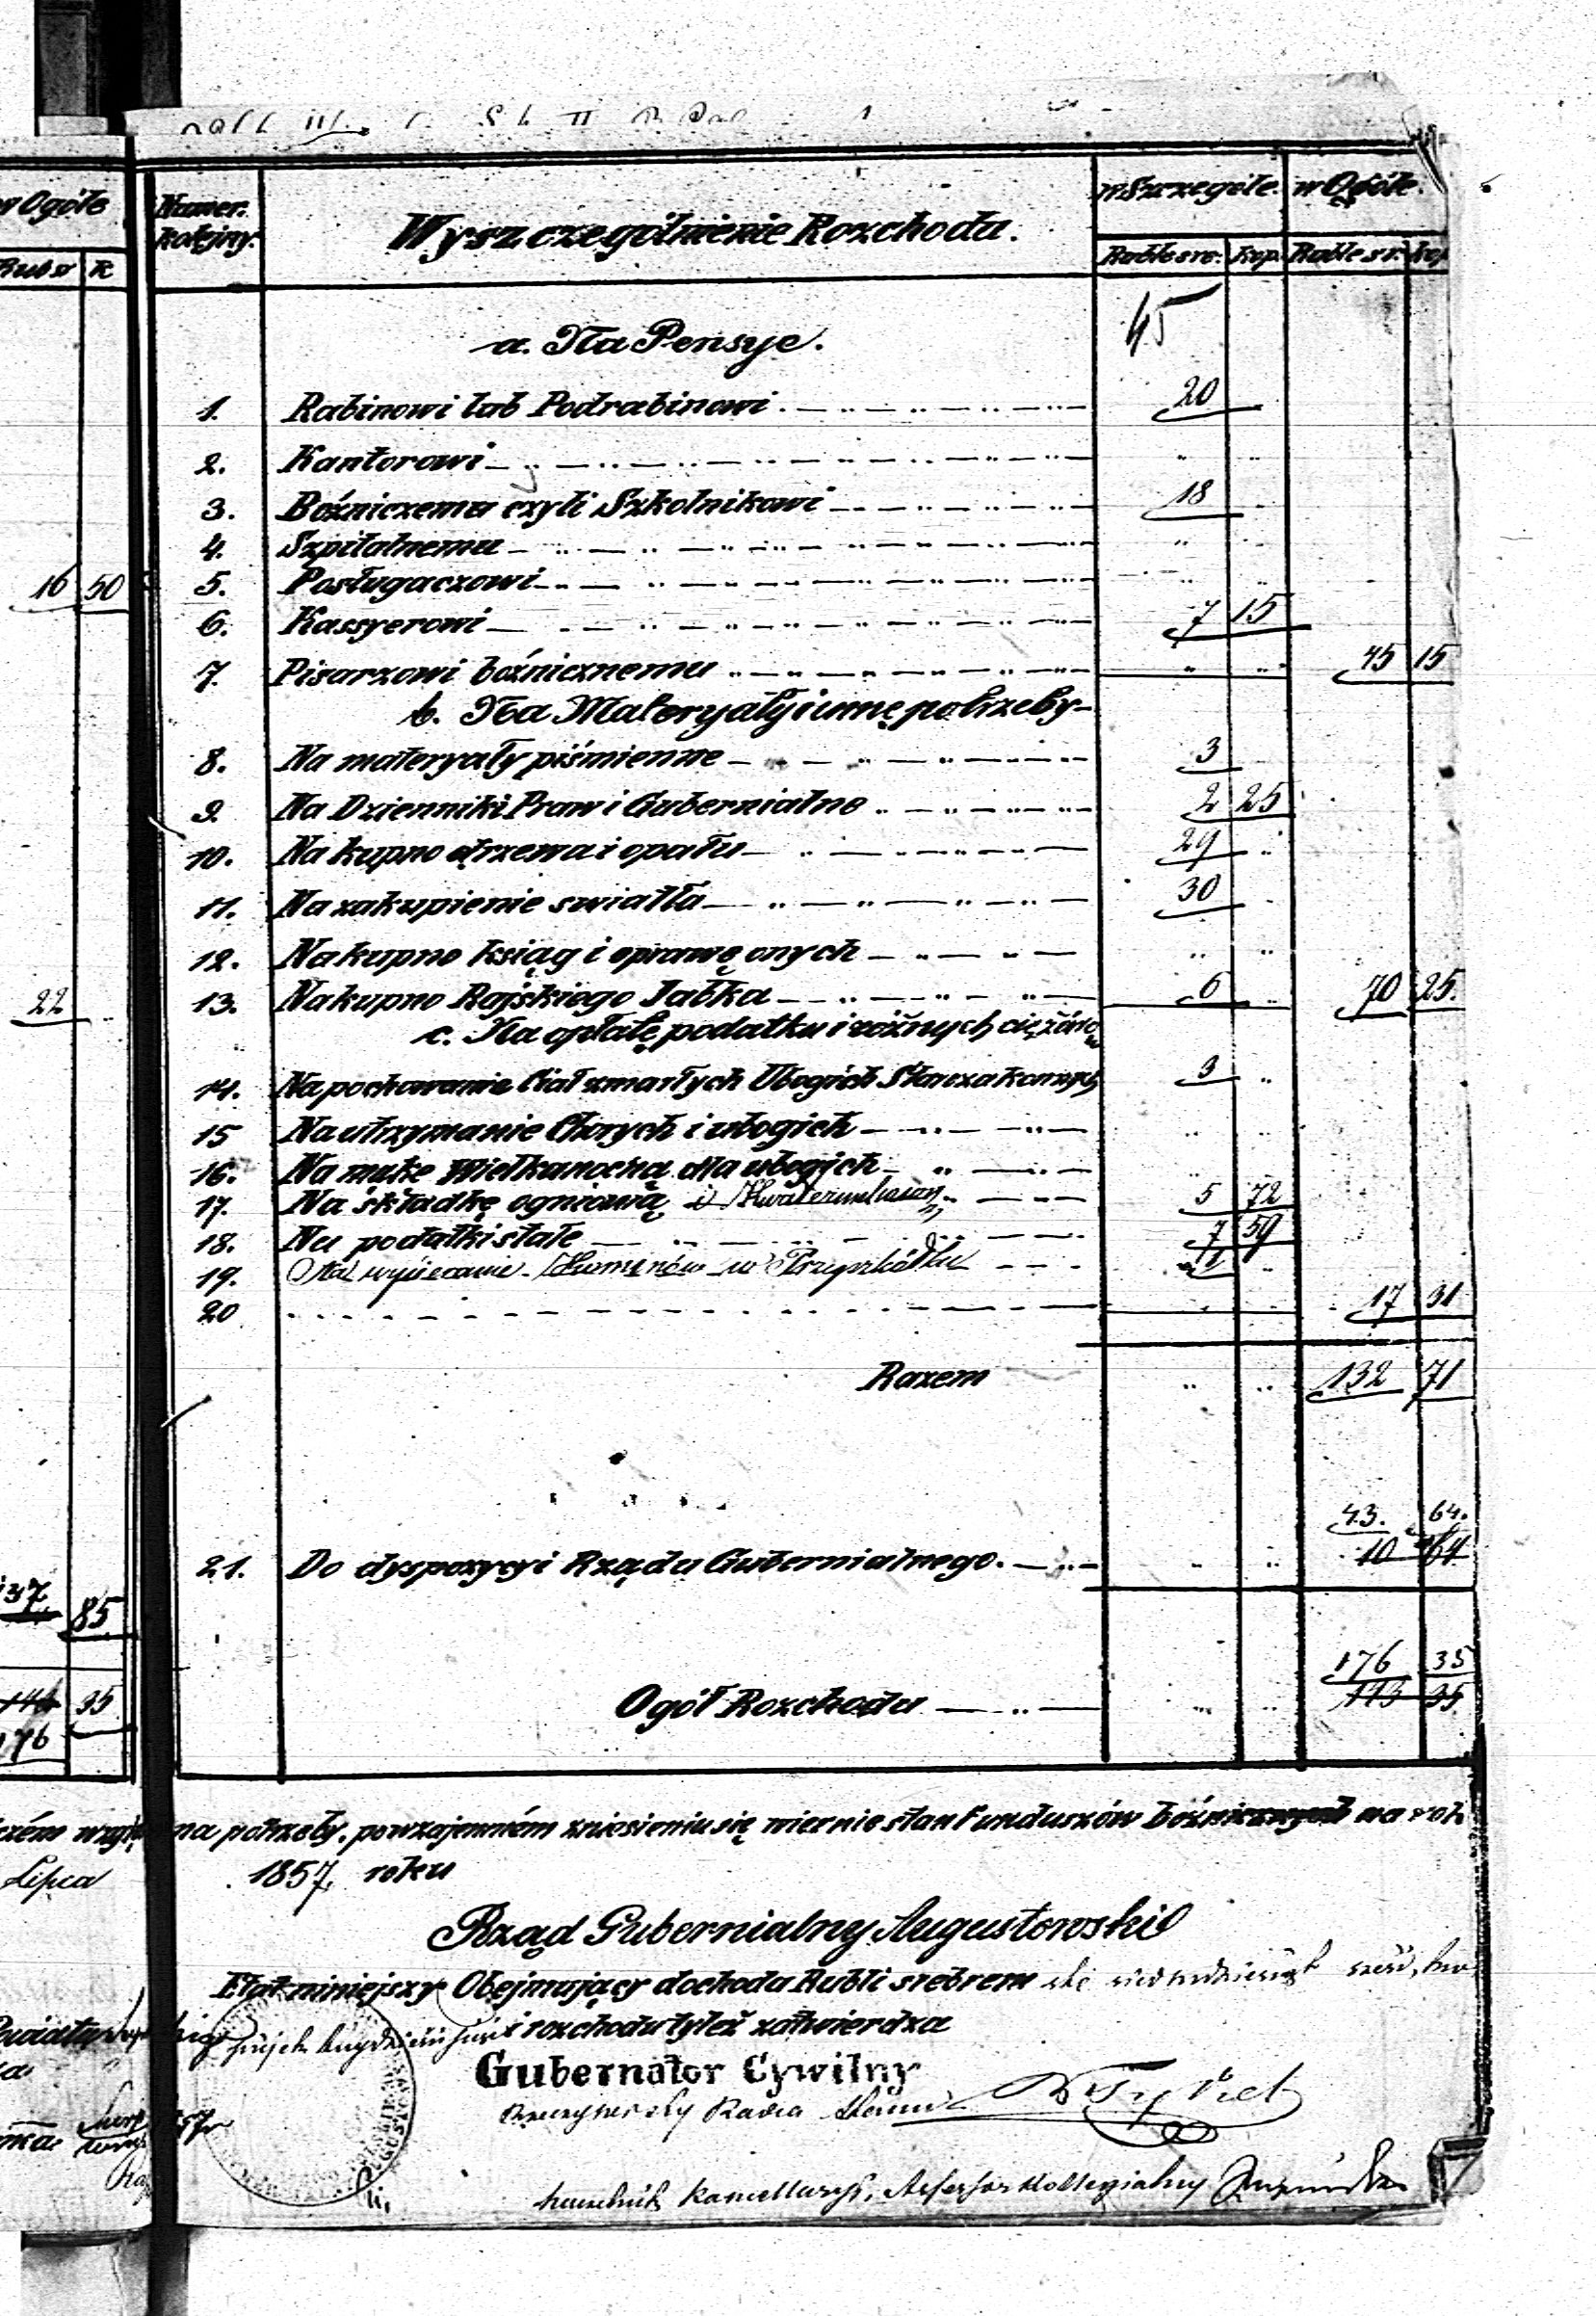 w Ogóle
Rub sr K
16 50
22
137 85
35
176
Numer kolejny.
Wyszczególnienie Rozchodu.
w Szczególe w Ogóle.
Ruble sre: Kop. Ruble sr: Kop
45
a. Na Pensye.
1. Rabinowi lub Podrabinowi 20
2. Kantorowi
3. Bóźniczemu czyli Szkolnikowi 18
4. Szpitalnemu
5. Posługaczowi
6. Kassyerowi 7 15
7. Pisarzowi bóźnicznemu 45 15
b. Na Materyały i inne potrzeby
8. Na materyały piśmienne 3
9. Na Dzienniki Praw i Gubernialne 2 25
10. Na kupno drzewa i opału 29
11. Na zakupienie swiatła 30
12. Na kupno ksiąg i oprawę onych
13. Na kupno Rajskiego Jabka 6 70 25.
c. Na opłatę podatku i różnych ciężarów
14. Na pochowanie Ciał zmarłych Ubogich Starozakonnych 3
15 Na utrzymanie Chorych i ubogich
16. Na make Wielkanocną dla ubogich
17. Na składkę ogniową i 5 72
18. Na podatki stałe 7 59
19. Na w 1
20 17 31
Razem 132 71
43. 64.
21. Do dyspozycyi Rządu Gubernialnego. 10 64
176 35
Ogół Rozchodu 143 35
na potrzeby, po wzajemném zniesieniu się miernie stan Funduszów bóźnicznych na rok
Lipca 1857 roku
Rząd Gubernialny Augustowski
Etat niniejszy Obejmujący dochodu Rubli srebrem sto siedmdziesiąt sześć, kop
i rozchodu tyleż zatwierdza
Gubernator Cywilny
Rzeczywisty Radca Stanu
Naczelnik Kancellaryi, Assessor Kollegialny